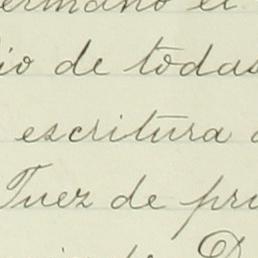 ermano el
io de todas
escritura
Juez de pri